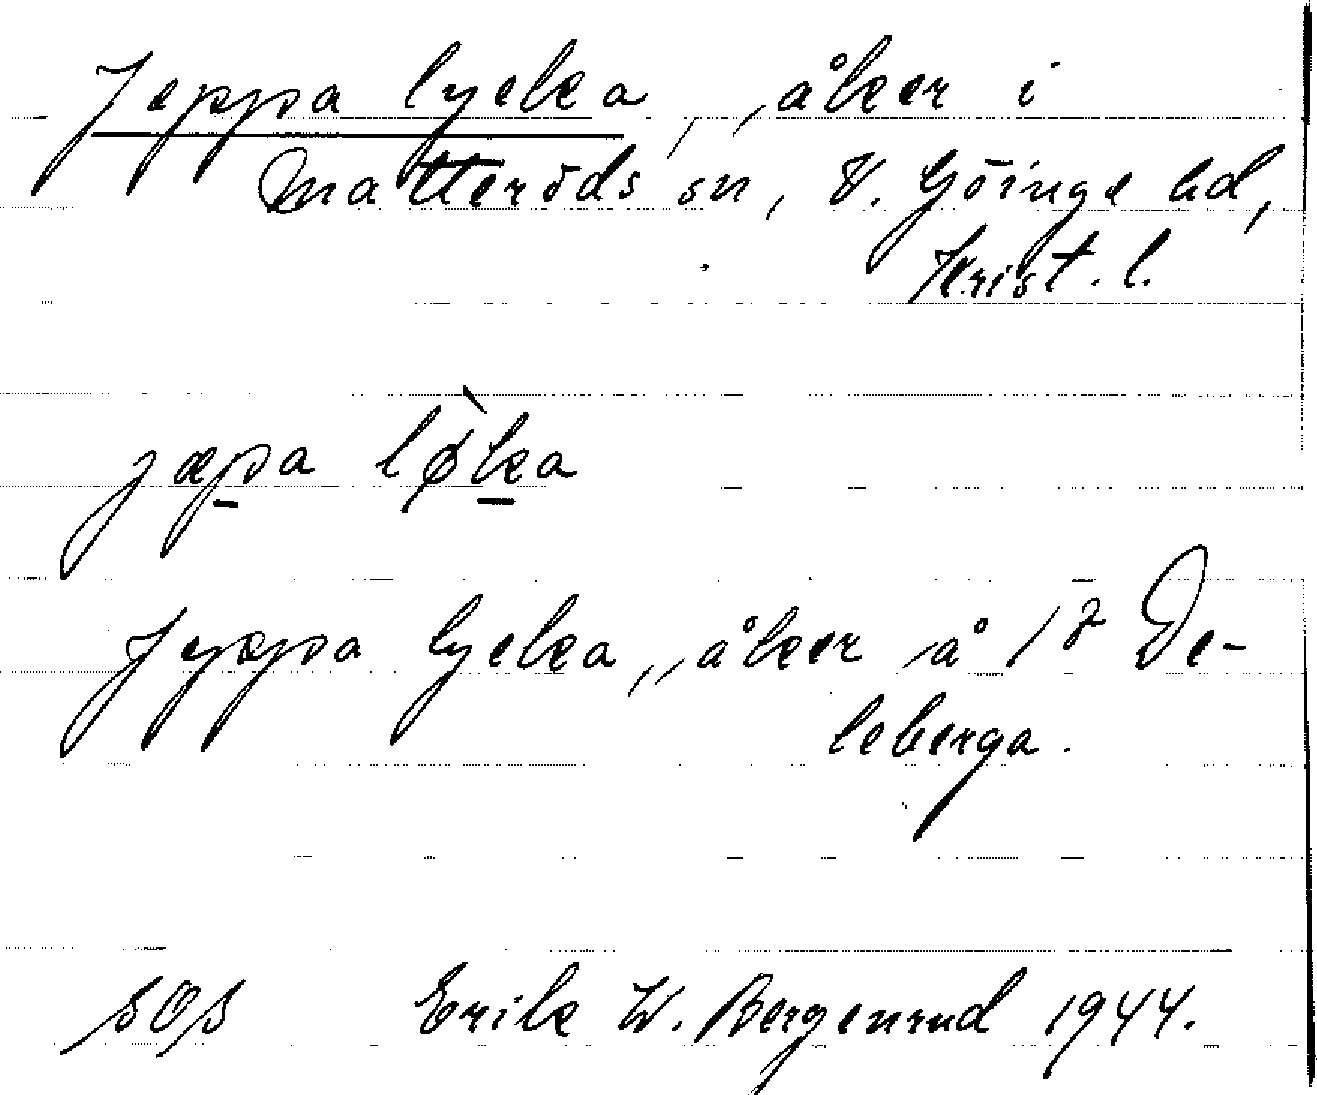 Jeppa lycka, åker i
Matteröds sn, V. Göinge hd,
Krist. l.
jæpa løka
Jeppa lycka, åker å 1² De-
leberga.
SOS Erik W. Bergenrud 1944.